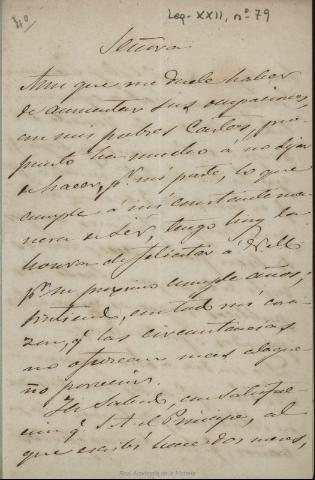 Leg. XXII, nº 79
40
Señora
Aun que me duele haber
de aumentar sus ocupaciones,
con mis pobres Cartas, pro-
puesto ha mucho á no dejar
de hacer, pr mi parte, lo que
cumple á mi constante ma-
nera de sér, tengo hoy la
honra de felicitar á V.M.
pr su proximo cumple años,
sintiendo, con todo mi cora-
zon, q. las circunstancias
no ofrezcan mas alague-
ño porvenir.
He sabido, con satisfac-
cion q. S.A. el Principe, al
que escribí hace dos meses,
Real Academia de la Historia